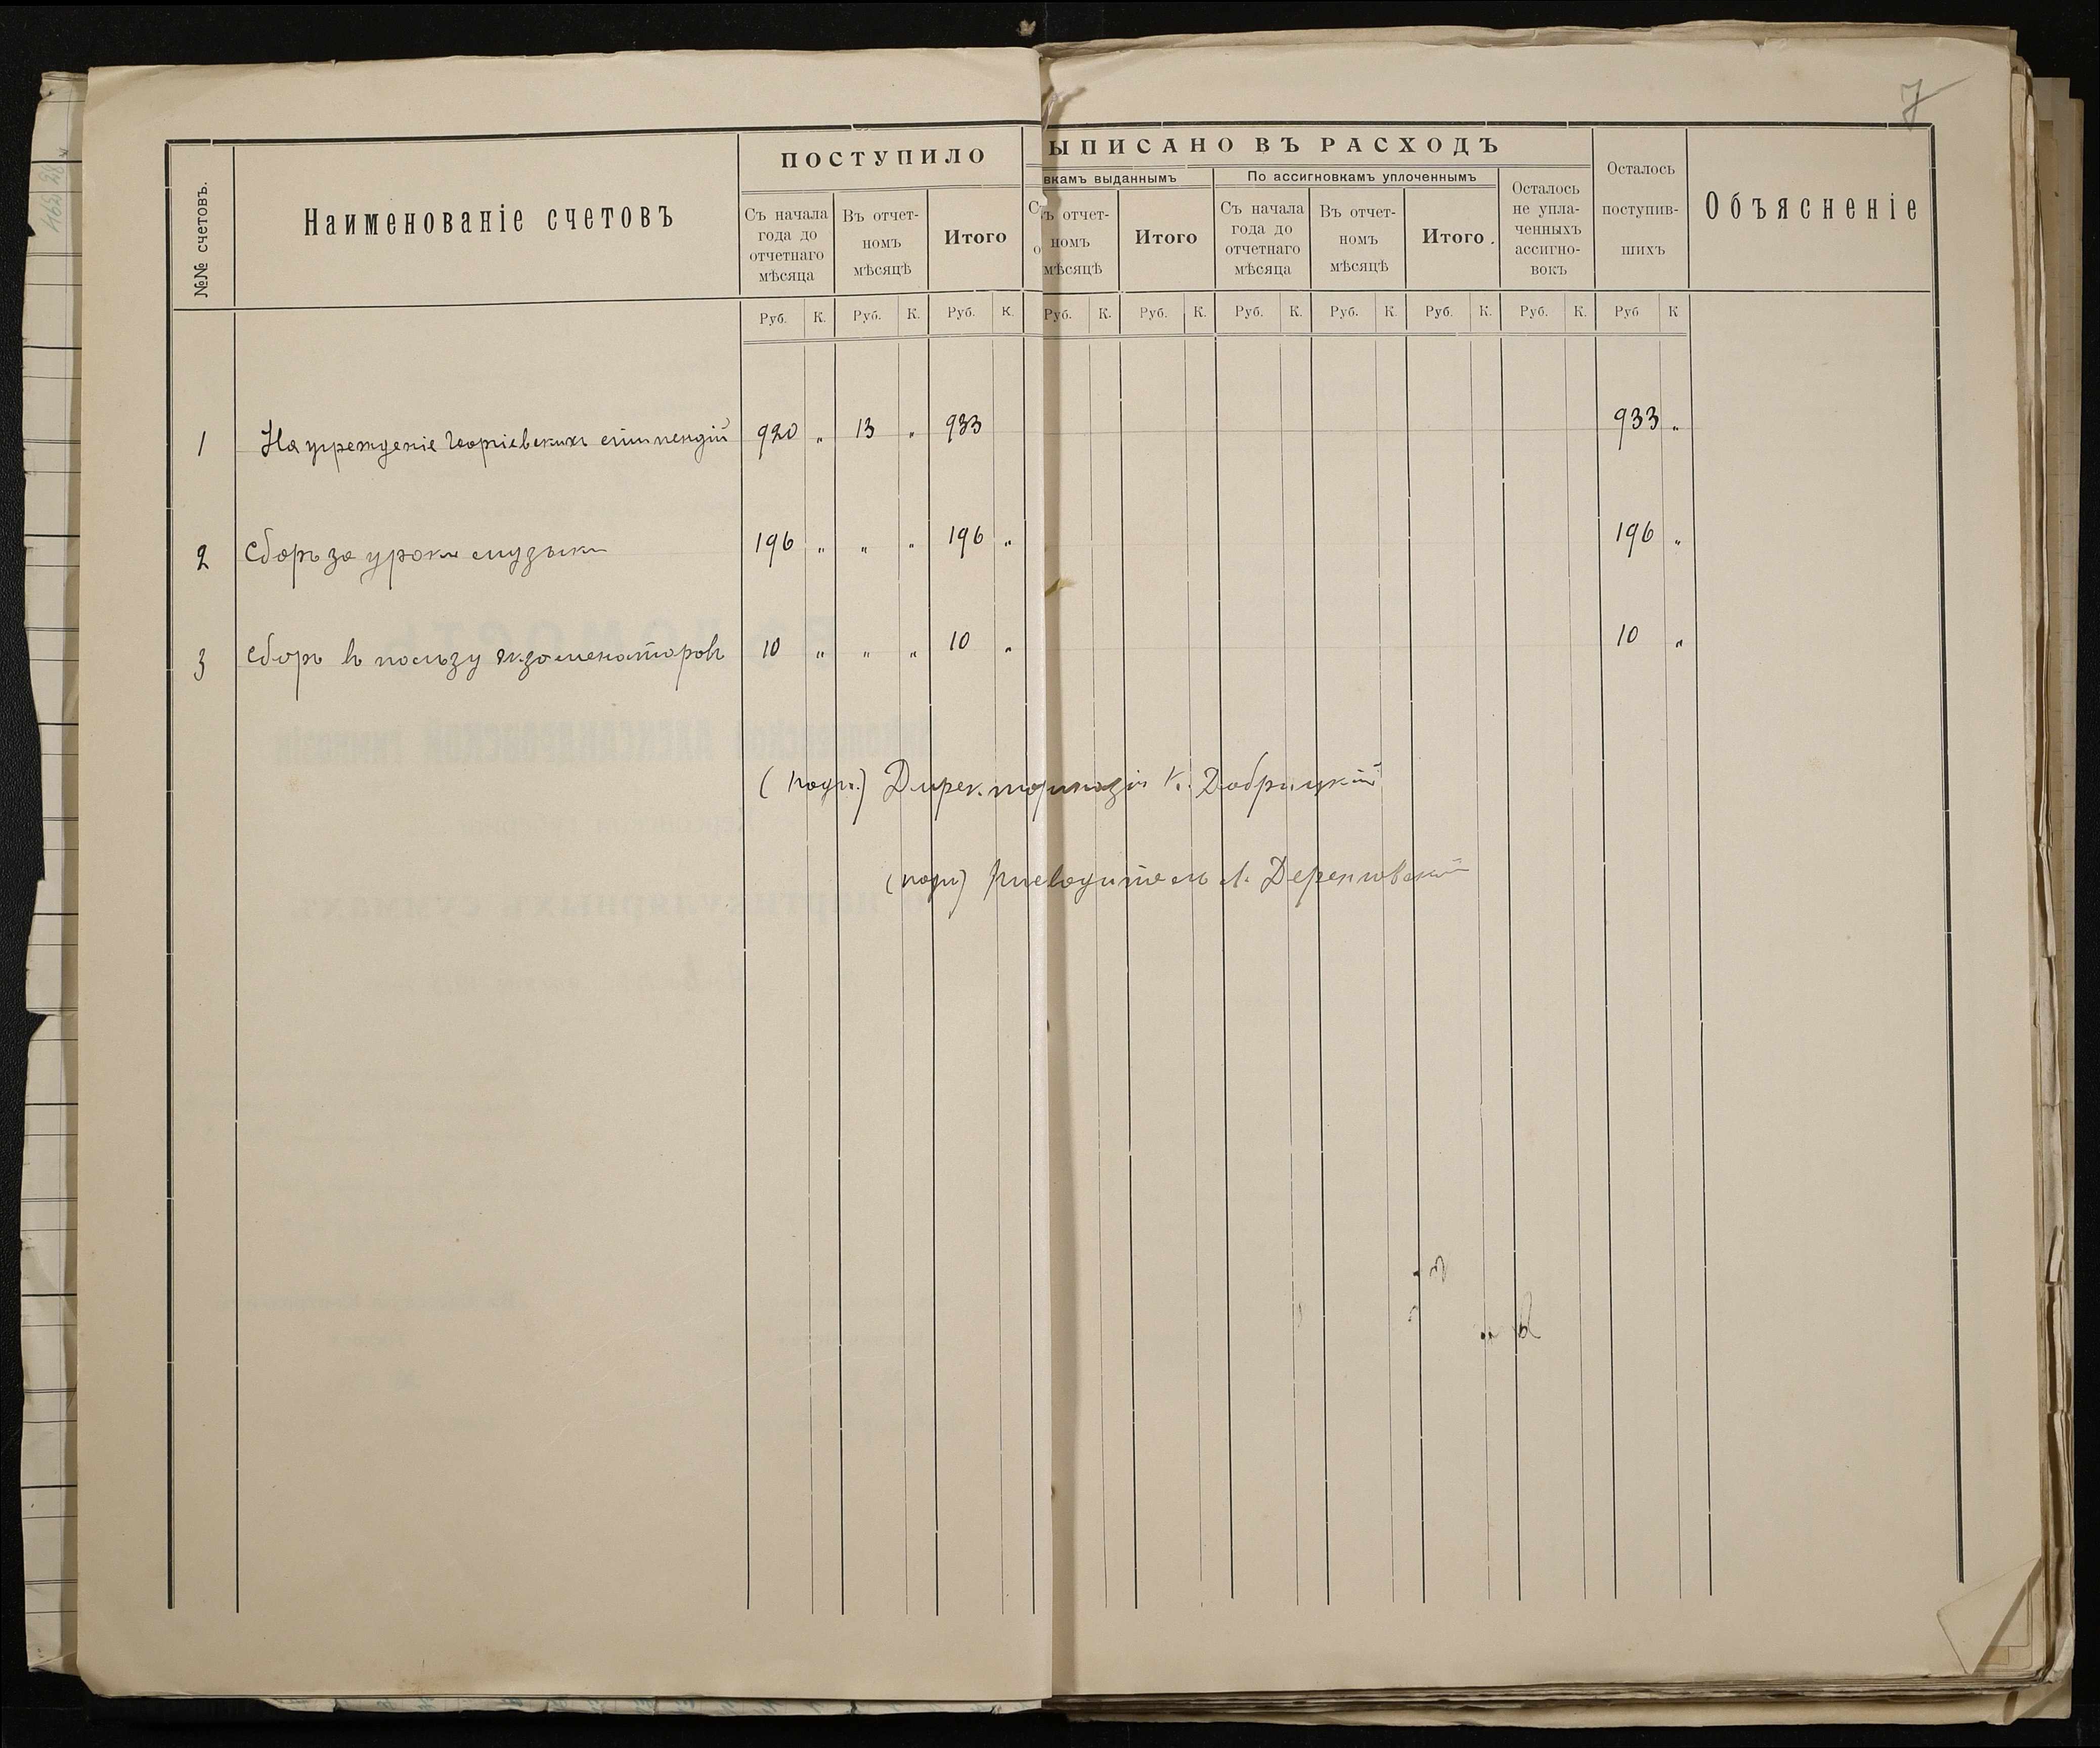 7
№№ счетовъ.
Наименованіе счетовъ
ПОСТУПИЛО
Съ начала года до отчетнаго мѣсяца
Въ отчет-номъ мѣсяцѣ
Итого
ЫПИСАНО ВЪ РАСХОДЪ
вкамъ выданнымъ
ъ отчет-номъ мѣсяцѣ
Итого
По ассигновкамъ уплоченнымъ
Съ начала года до отчетнаго мѣсяца
Въ отчет-номъ мѣсяцѣ
Итого.
Осталось не упла-ченныхъ ассигно-вокъ
Осталось поступив-шихъ
Объясненіе
Руб. К. Руб. К. Руб. К. Руб. К. Руб. К. Руб. К. Руб. К. Руб. К. Руб. К. Руб К
1 На учрежденіе Георгіевскихъ стипендій 920 „ 13 „ 933 933 „
2 Сборъ за уроки музыки 196 „ „ „ 196 „ 196 „
3 Сборъ въ пользу экзаменаторовъ 10 „ „ „ 10 „ 10 „
(подп.) Директоръ гимназіи К. Добрицкій
(подп)